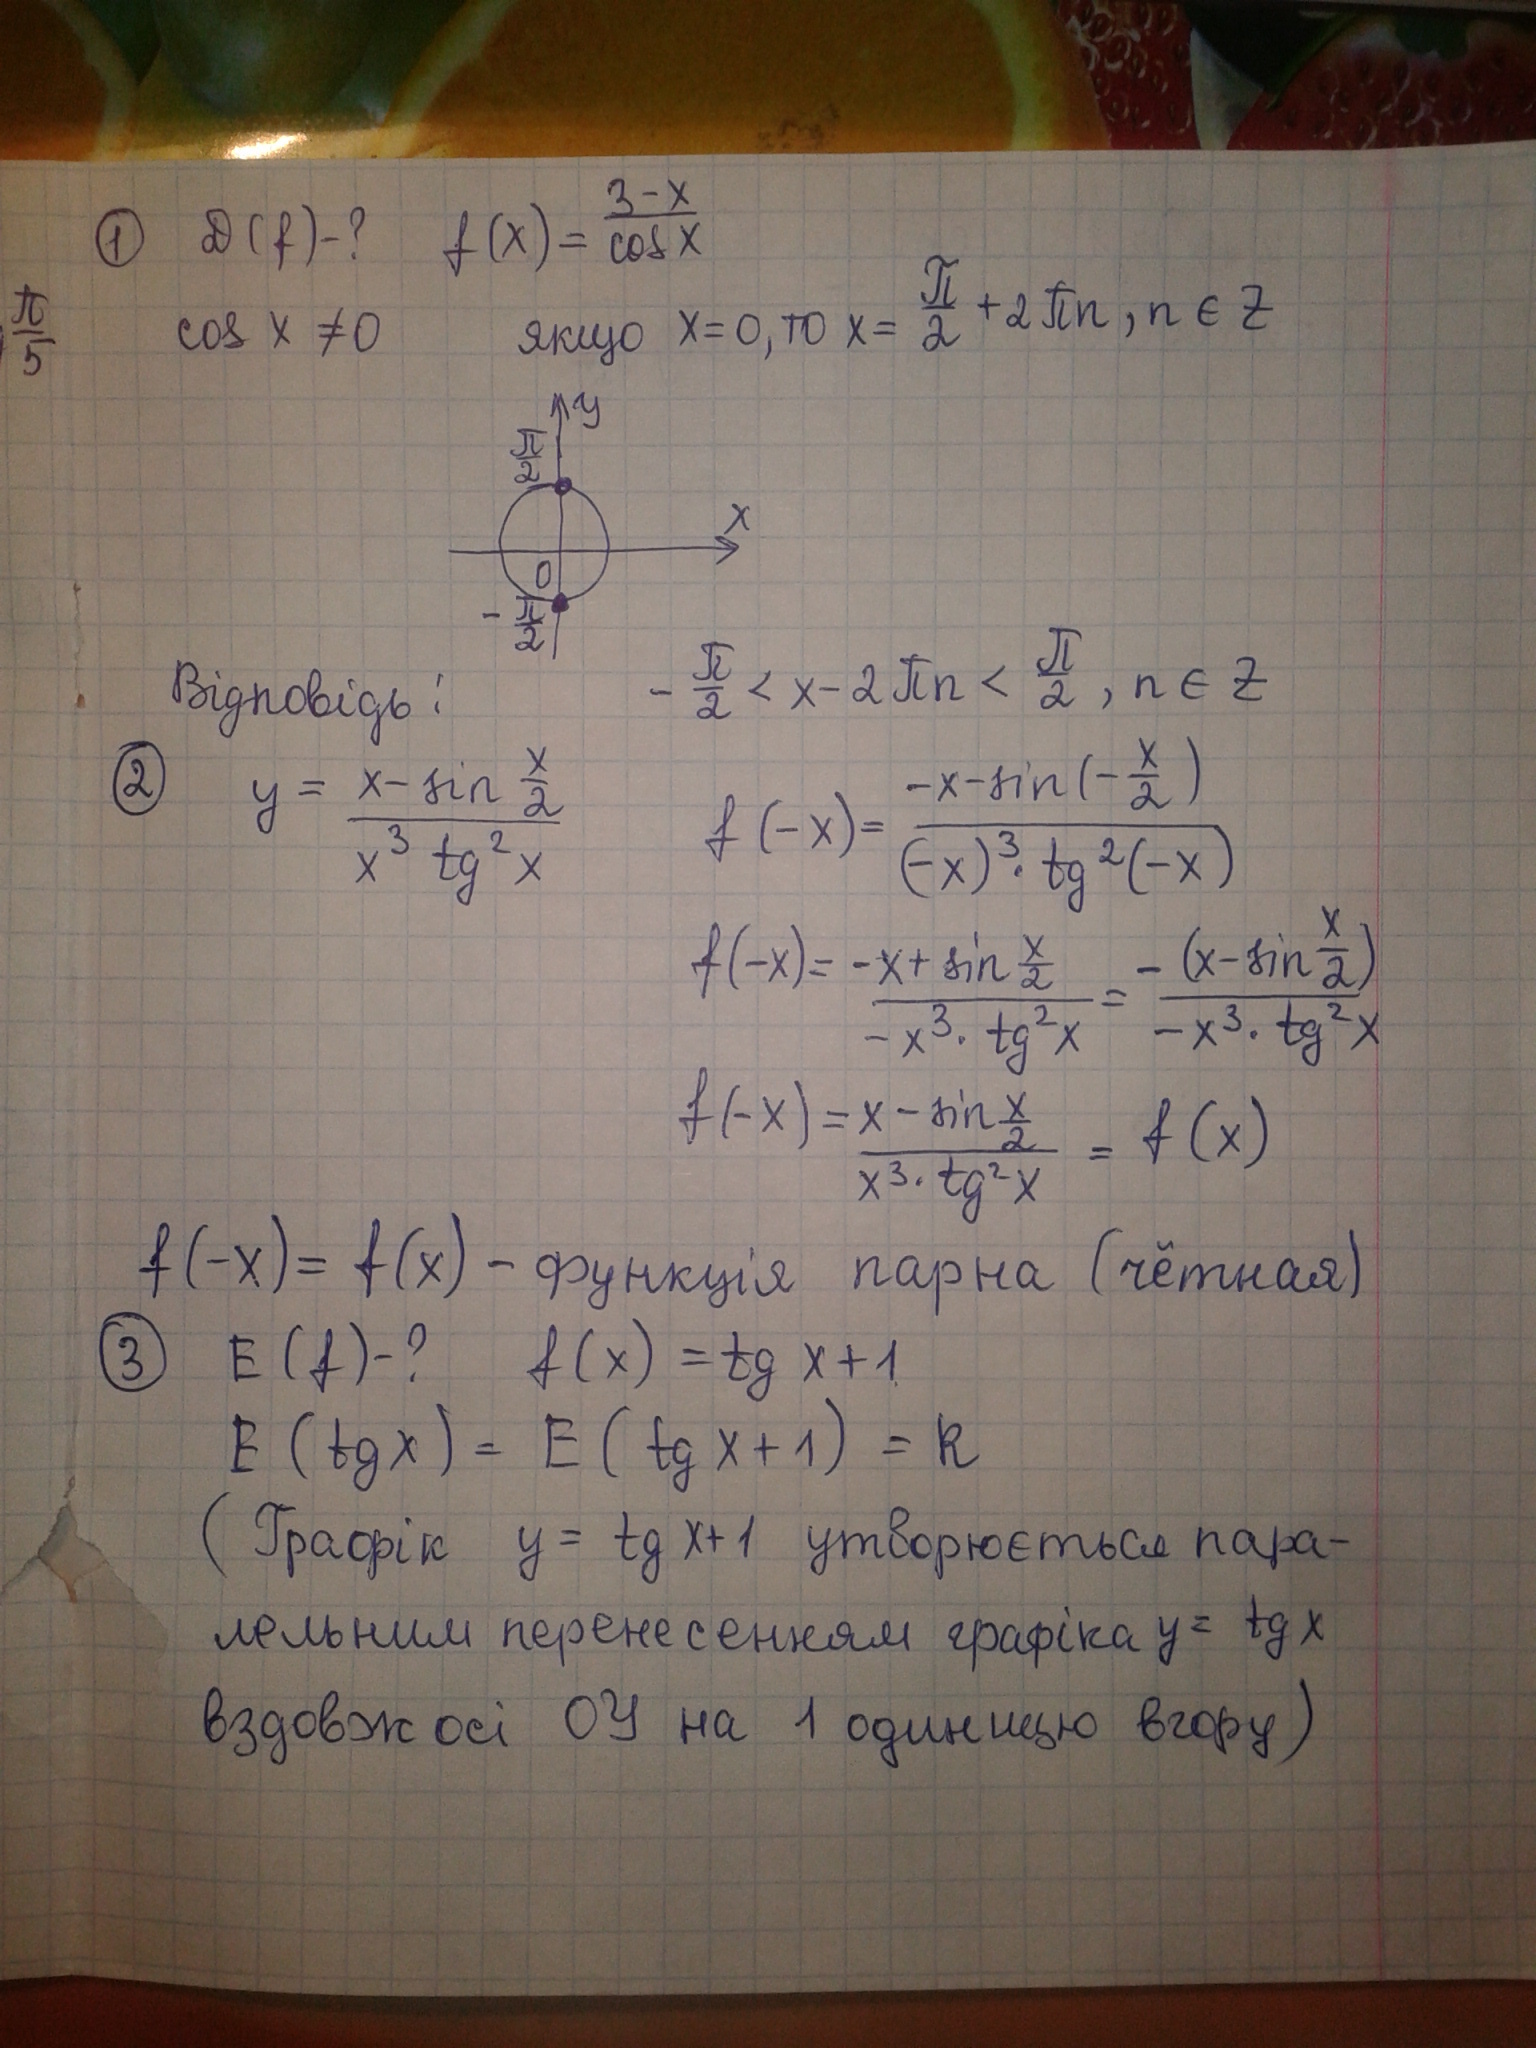 ① D(f)-? f(x) = (3-x)/(cos x)
π/5
cos x ≠ 0 якщо x=0, то x = π/2 + 2πn, n ∈ Z
y
π/2
x
0
-π/2
Відповідь: -π/2 < x - 2πn < π/2, n ∈ Z
② y = (x - sin x/2)/(x³ tg² x) f(-x) = (-x - sin(-x/2))/((-x)³ · tg²(-x))
f(-x) = (-x + sin x/2)/(-x³ · tg² x) = (-(x - sin x/2))/(-x³ · tg² x)
f(-x) = (x - sin x/2)/(x³ · tg² x) = f(x)
f(-x) = f(x) - функція парна (чётная)
③ E(f)-? f(x) = tg x + 1
E(tg x) = E(tg x + 1) = R
(Графік y = tg x + 1 утворюється пара-
лельним перенесенням графіка y = tg x
вздовж осі OY на 1 одиницю вгору)